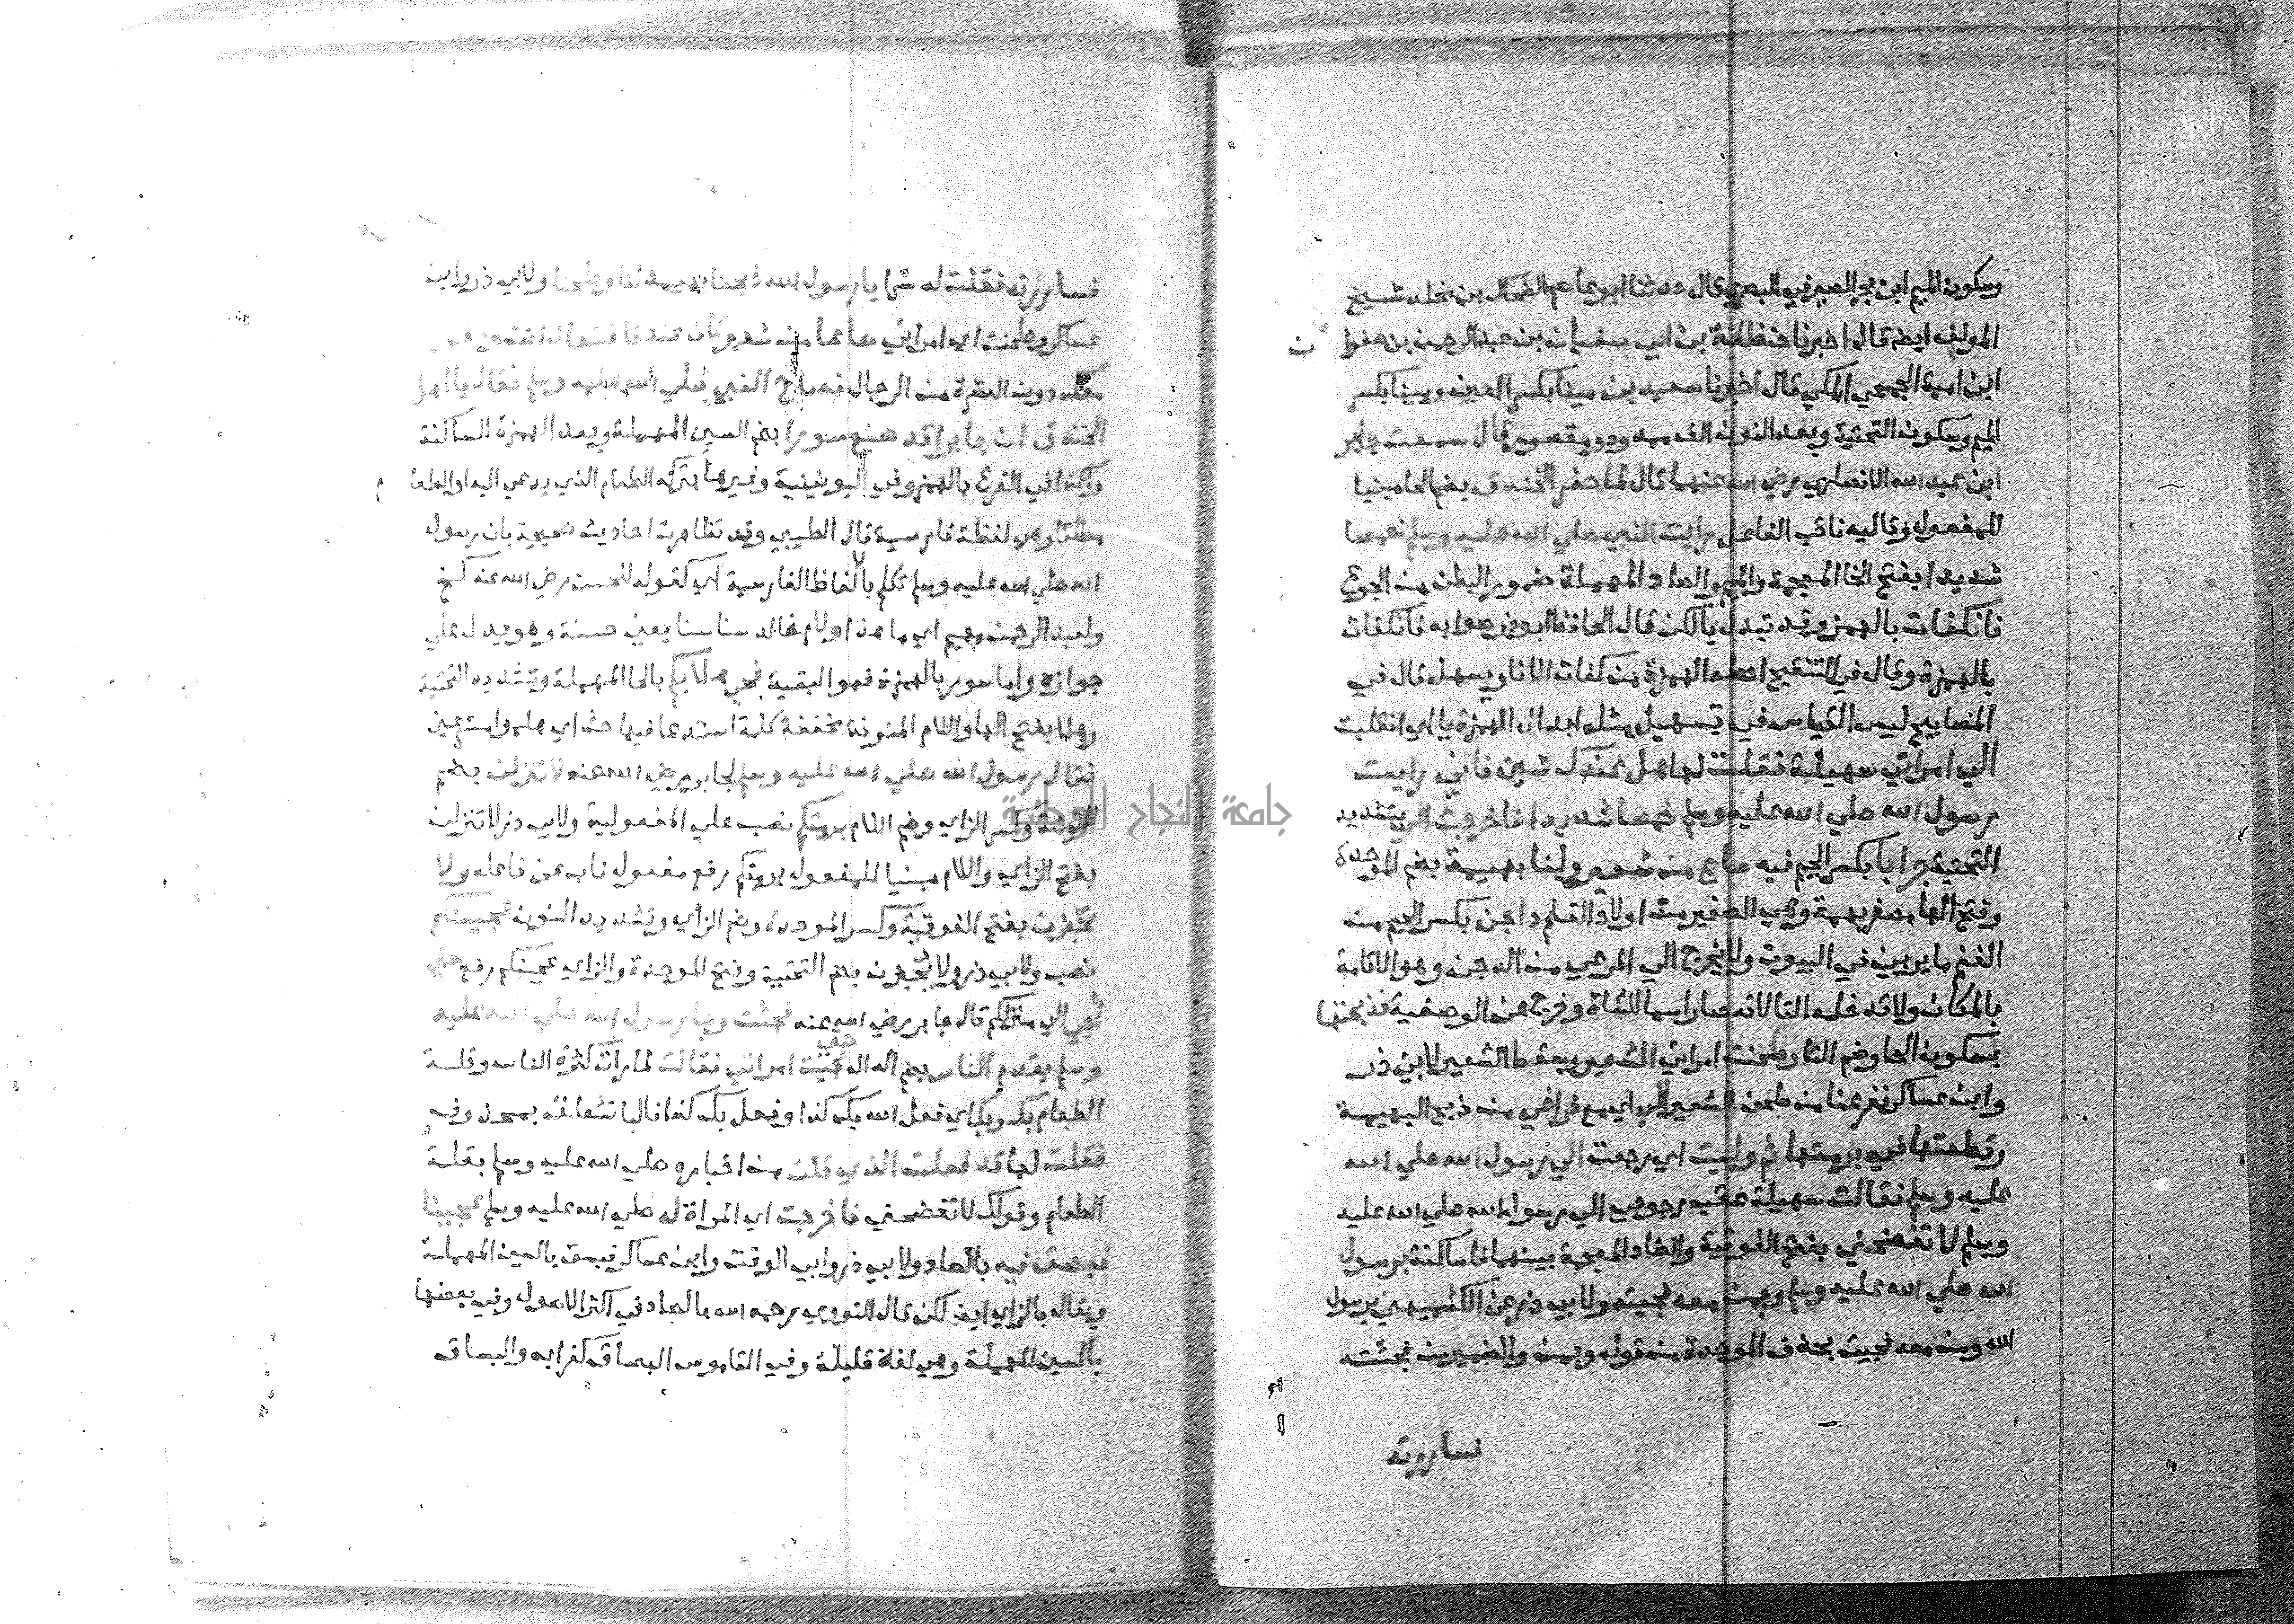 وسكون الميم ابن بحر الصيرفي البصري قال حدثنا ابو عاصم الضحاك بن مخلد شيخ
المولف ايضا قال اخبرنا حنظلة بن ابي سفيان بن عبد الرحمن بن صفوا ن
ابن امية الجمحي المكي قال اخبرنا سعيد بن مينا بكسر العين ومينا بكسر
الميم وسكون التحتية وبعد النون الف ممدود ومقصور قال سمعت جابر
ابن عبد الله الانصاري رضي الله عنهما قال لما حفر الخندق بضم الحا مبنيا
للمفعول وتاليه نائب الفاعل رايت النبي صلي الله عليه وسلم خمصا
شديدا بفتح الخا المعجمة والميم والصاد المهملة ضمور البطن من الجوع
فانكفات بالهمز وقد تبدل يا لكن قال الحافظ ابو ذر صوابه فانكفات
بالهمزة وقال في التنقيح اصله الهمزة من كفات الانا ويسهل قال في
المصابيح ليس القياس في تسهيل مثله ابدال الهمزة يا اي انقلبت
الي امراتي سهيلة فقلت لها هل عندك شي فاني رايت
رسول الله صلي الله عليه وسلم خمصا شديدا فاخرجت الي بتشديد
التحتية جرابا بكسر الجيم فيه صاع من شعير ولنا بهيمة بضم الموحدة
وفتح الها مصغر بهمة وهي الصغير من اولاد الغنم داجن بكسر الجيم من
الغنم ما يربي في البيوت ولا يخرج الي المرعي من الدجن وهو الاقامة
بالمكان ولا تدخله التا لانه صار اسما للشاة وخرج عن الوصفية فذبحتها
بسكون الحا وضم التا وطحنت امراتي الشعير وسقط الشعير لابي ذر
وابن عساكر ففرغنا من طحن الشعير الي اي مع فراغي من ذبح البهيمة
وقطعتها في برمتها ثم وليت اي رجعت الي رسول الله صلي الله
عليه وسلم فقالت سهيلة عقب رجوعي الي رسول الله صلي الله عليه
وسلم لا تفضحني بفتح الفوقية والضاد المعجمة بينهما فا ساكنة برسول
الله صلي الله عليه وسلم وبمن معه فجيته ولابي ذر عن الكشميهني برسول
الله ومن معه فجيت بحذف الموحدة من قوله وبمن والضمير من فجئته
فساررته
فساررته فقلت له سرا يا رسول الله ذبحنا بهيمة لنا وطحنا ولابي ذر وابن
عساكر وطحنت اي امراتي صاعا من شعير كان عندنا فتعال انت
معك دون العشرة من الرجال فصاح النبي صلي الله عليه وسلم فقال يا اهل
الخندق ان جابرا قد صنع سورا بضم السين المهملة وبعد الهمزة الساكنة
وكذا في الفرع بالهمز وفي اليونينية وغيرها بتركه الطعام الذي يدعي اليه او الطعا م
مطلقا وهي لفظة فارسية قال الطيبي وقد تظاهرت احاديث صحيحة بان رسول
الله صلي الله عليه وسلم تكلم بالفاظ الفارسية اي كقوله للحسن رضي الله عنه كخ
ولعبد الرحمن مهيم اي ما هذا ولام خالد سنا سنا يعني حسنة وهو يدل علي
جوازه واما سور بالهمزة فهو البقية فحي هلا بكم بالحا المهملة وتشديد التحتية
وهلا بفتح الها واللام المنونة مخففة كلمة استدعا فيها حث اي هلموا مسرعين
فقال رسول الله صلي الله عليه وسلم لجابر رضي الله عنه لا تنزلن بضم
الفوقية وكسر الزاي وضم اللام برمتكم نصب علي المفعولية ولابي ذر لا تنزلن
بفتح الزاي واللام مبنيا للمفعول برمتكم رفع مفعول ناب عن فاعله ولا
تخبزن بفتح الفوقية وكسر الموحدة وضم الزاي وتشديد النون عجينكم
نصب ولابي ذر ولا يخبزن بضم التحتية وفتح الموحدة والزاي عجينكم رفع حتي
اجي الي منزلكم قال جابر رضي الله عنه فجئت وجا رسول الله صلي الله عليه
وسلم يقدم الناس بضم الدال حتي جئت امراتي فقالت لما رات كثرة الناس وقلة
الطعام بك وبك اي فعل الله بك كذا وفعل بك كذا فالبا تتعلق بمحذوف
فقلت لها قد فعلت الذي قلت من اخباره صلي الله عليه وسلم بقلة
الطعام وقولك لا تفضحني فاخرجت اي المراة له صلي الله عليه وسلم عجينا
فبصق فيه بالصاد ولابي ذر وابي الوقت وابن عساكر فبسق بالسين المهملة
ويقال بالزاي ايضا لكن قال النووي رحمه الله بالصاد في اكثر الاصول وفي بعضها
بالسين المهملة وهي لغة قليلة وفي القاموس البصاق كغراب والبساق
جامعة النجاح الوطنية